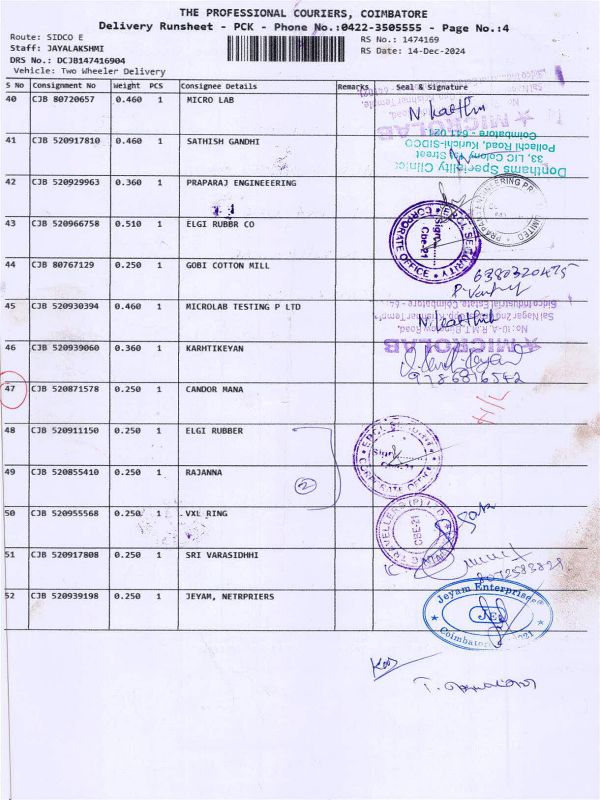 THE PROFESSIONAL COURIERS, COIMBATORE
Delivery Runsheet - PCK - Phone No.:0422-3505555 - Page No.:4
Route: SIDCO E
RS No.: 1474169
Staff: JAYALAKSHMI
RS Date: 14-Dec-2024
DRS No.: DCJB147416904
Vehicle: Two Wheeler Delivery
S No Consignment No Weight PCS Consignee Details Remarks Seal & Signature
40 CJB 80720657 0.460 1 MICRO LAB
N. karthik
MICROLAB
41 CJB 520917810 0.460 1 SATHISH GANDHI
Donthams Speciality Clinic
33, LIC Colony 1st Street
Pollachi Road, Kurichi-SIDCO
Coimbatore - 641 021
42 CJB 520929963 0.360 1 PRAPARAJ ENGINEEERING
43 CJB 520966758 0.510 1 ELGI RUBBR CO
CORPORATE OFFICE
Cbe-21
44 CJB 80767129 0.250 1 GOBI COTTON MILL
6380320475
45 CJB 520930394 0.460 1 MICROLAB TESTING P LTD
N. karthik
MICROLAB
46 CJB 520939060 0.360 1 KARHTIKEYAN
9786816542
47 CJB 520871578 0.250 1 CANDOR MANA
48 CJB 520911150 0.250 1 ELGI RUBBER
49 CJB 520855410 0.250 1 RAJANNA
2
50 CJB 520955568 0.250 1 VXL RING
TRAVELLERS (P) LTD
CBE-21
51 CJB 520917808 0.250 1 SRI VARASIDHHI
52 CJB 520939198 0.250 1 JEYAM, NETRPRIERS
Jeyam Enterprises
JE